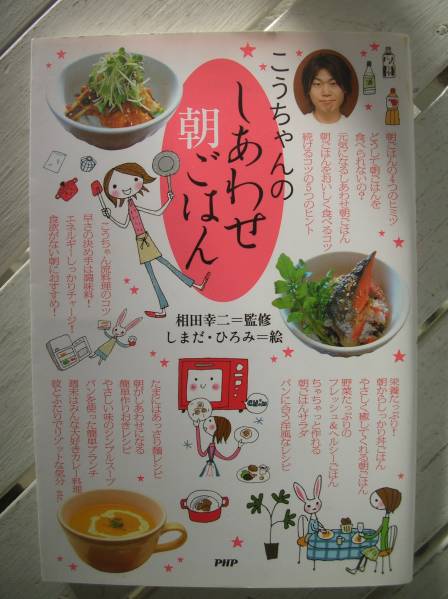 こうちゃんの
しあわせ
朝ごはん
朝ごはんの4つのヒミツ
どうして朝ごはんを
食べられないの?
元気になるしあわせ朝ごはん
朝ごはんをおいしく食べるコツ
続けるコツの5つのヒント
こうちゃん流料理のコツ
早さの決め手は調味料!
エネルギーしっかりチャージ!
食欲がない朝におすすめ!
相田幸二=監修
しまだ・ひろみ=絵
栄養たっぷり!
朝からしっかり丼ごはん
やさしく癒してくれる朝ごはん
野菜たっぷりの
フレッシュ&ヘルシーごはん
ちゃちゃっと作れる
朝ごはんサラダ
パンに合う洋風なレシピ
たまにはあっさり麺レシピ
朝がしあわせになる
簡単作りおきレシピ
やさしい味のシンプルスープ
パンを使った簡単ブランチ
週末はみんな大好きカレー料理
彼とふたりでリゾットな気分 etc.
PHP